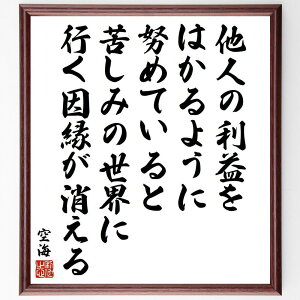 他人の利益を
はかるように
努めていると
苦しみの世界に
行く因縁が消える
空海